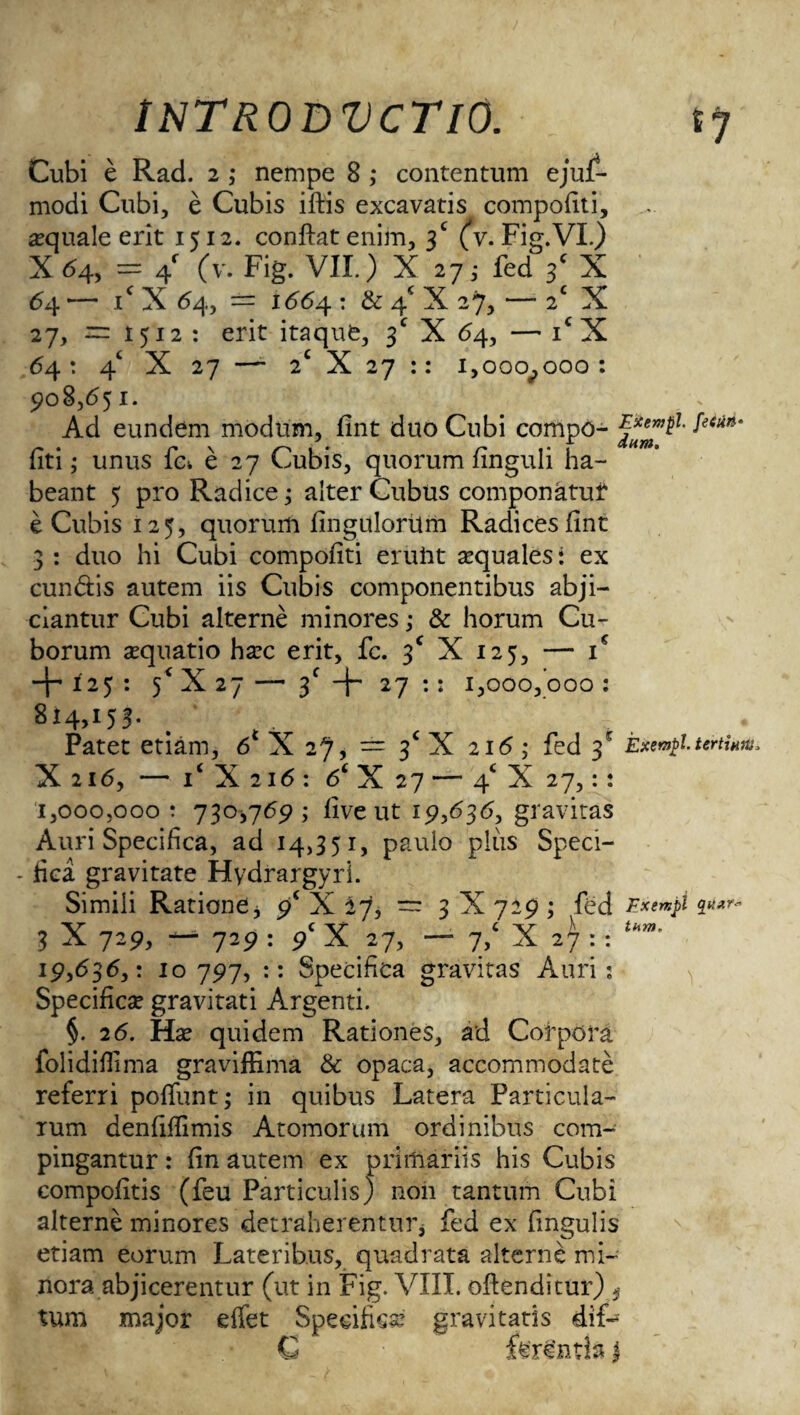 INTRODVCTIO. 17
Cubi è Rad. 2 ; nempe 8 ; contentum ejuſ-
modi Cubi, è Cubis iſtis excavatis compoſiti,
æquale erit 1512. conſtat enim, 3ᶜ (v. Fig.VI.)
X 64, = 4ᶜ (v. Fig. VII.) X 27; ſed 3ᶜ X
64 — 1ᶜ X 64, = 1664 : & 4ᶜ X 27, — 2ᶜ X
27, = 1512 : erit itaque, 3ᶜ X 64, — 1ᶜ X
64 : 4ᶜ X 27 — 2ᶜ X 27 :: 1,000,000 :
908,651.
Ad eundem modum, ſint duo Cubi compo- Exempl. ſecun-
ſiti ; unus ſc. è 27 Cubis, quorum ſinguli ha- dum.
beant 5 pro Radice ; alter Cubus componatur
è Cubis 125, quorum ſingulorum Radices ſint
3 : duo hi Cubi compoſiti erunt æquales : ex
cunctis autem iis Cubis componentibus abji-
ciantur Cubi alternè minores ; & horum Cu-
borum æquatio hæc erit, ſc. 3ᶜ X 125, — 1ᶜ
+ 125 : 5ᶜ X 27 — 3ᶜ + 27 :: 1,000,000 :
814,153.
Patet etiam, 6ᶜ X 27, = 3ᶜ X 216 ; ſed 3ᶜ Exempl. tertium.
X 216, — 1ᶜ X 216 : 6ᶜ X 27 — 4ᶜ X 27, ::
1,000,000 : 730,769 ; ſive ut 19,636, gravitas
Auri Specifica, ad 14,351, paulo plùs Speci-
ficâ gravitate Hydrargyri.
Simili Ratione, 9ᶜ X 27, = 3 X 729 ; ſed Exempl quar-
3 X 729, — 729 : 9ᶜ X 27, — 7,ᶜ X 27 :: tum.
19,636, : 10 797, :: Specifica gravitas Auri :
Specificæ gravitati Argenti.
§. 26. Hæ quidem Rationes, ad Corpora
ſolidiſſima graviſſima & opaca, accommodatè
referri poſſunt ; in quibus Latera Particula-
rum denſiſſimis Atomorum ordinibus com-
pingantur : ſin autem ex primariis his Cubis
compoſitis (ſeu Particulis) non tantum Cubi
alternè minores detraherentur, ſed ex ſingulis
etiam eorum Lateribus, quadrata alternè mi-
nora abjicerentur (ut in Fig. VIII. oſtenditur),
tum major eſſet Specificæ gravitatis dif-
C ferentia ;